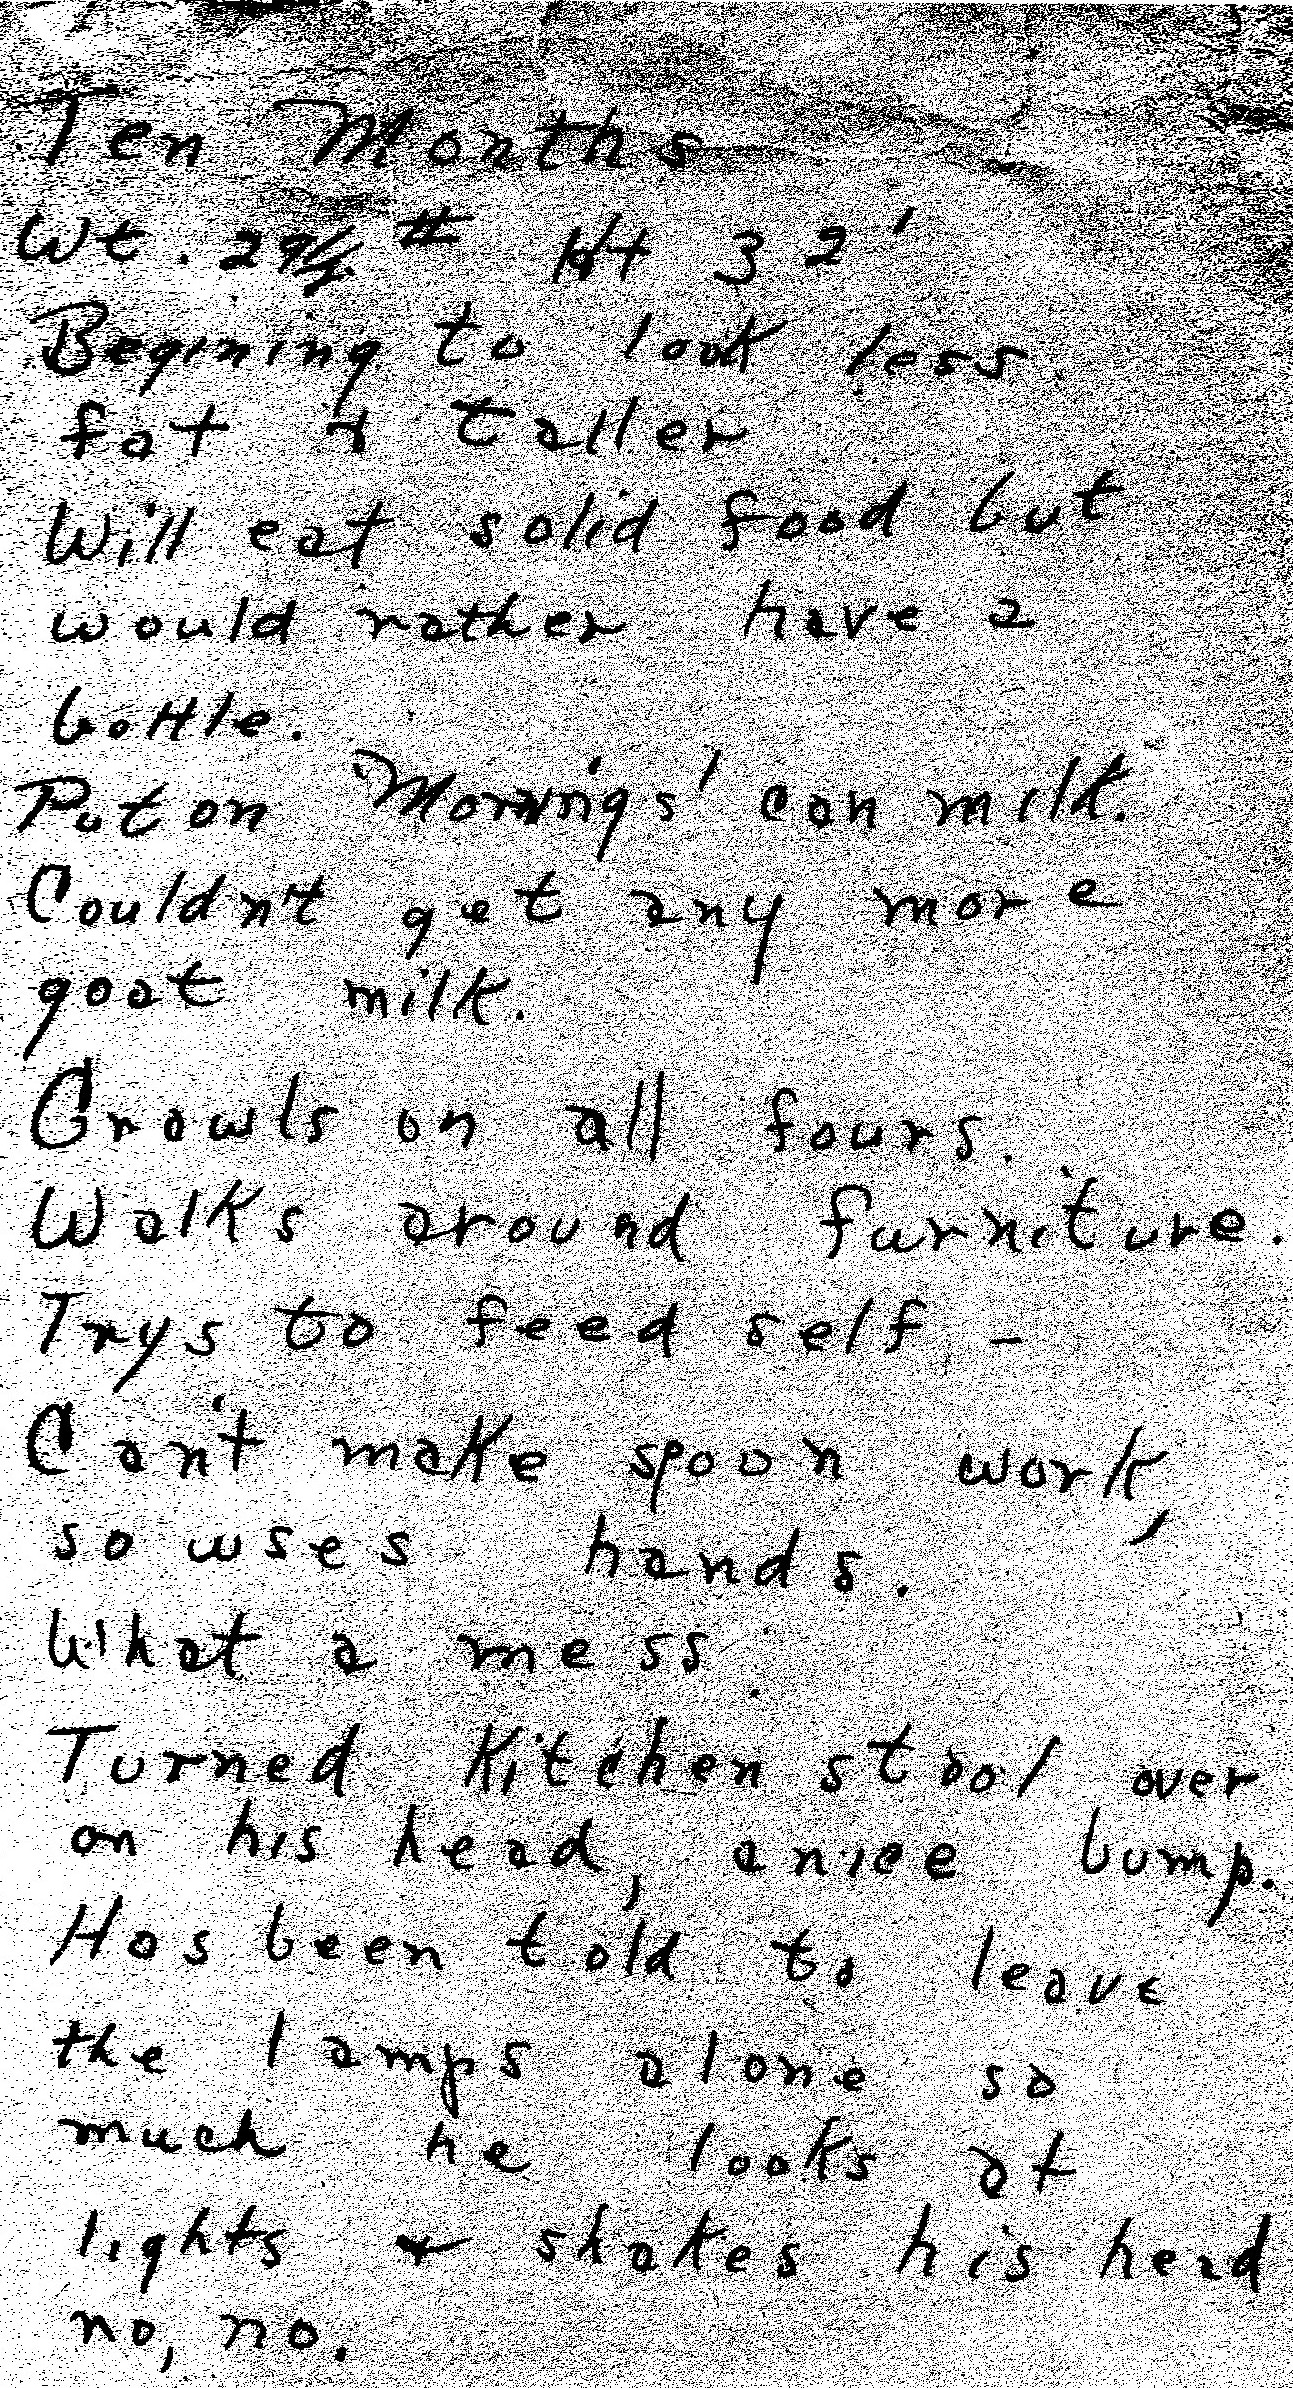 Ten Months
Wt. 29½ # Ht 32'
Begining to look less
fat & taller
Will eat solid food but
would rather have a
bottle.
Put on Morning's' can milk.
Couldn't get any more
goat milk.
Crawls on all fours.
Walks around furniture.
Trys to feed self -
Can't make spoon work
so uses hands.
What a mess
Turned kitchen stool over
on his head, a nice bump.
Has been told to leave
the lamps alone so
much he looks at
lights & shakes his head
no, no.